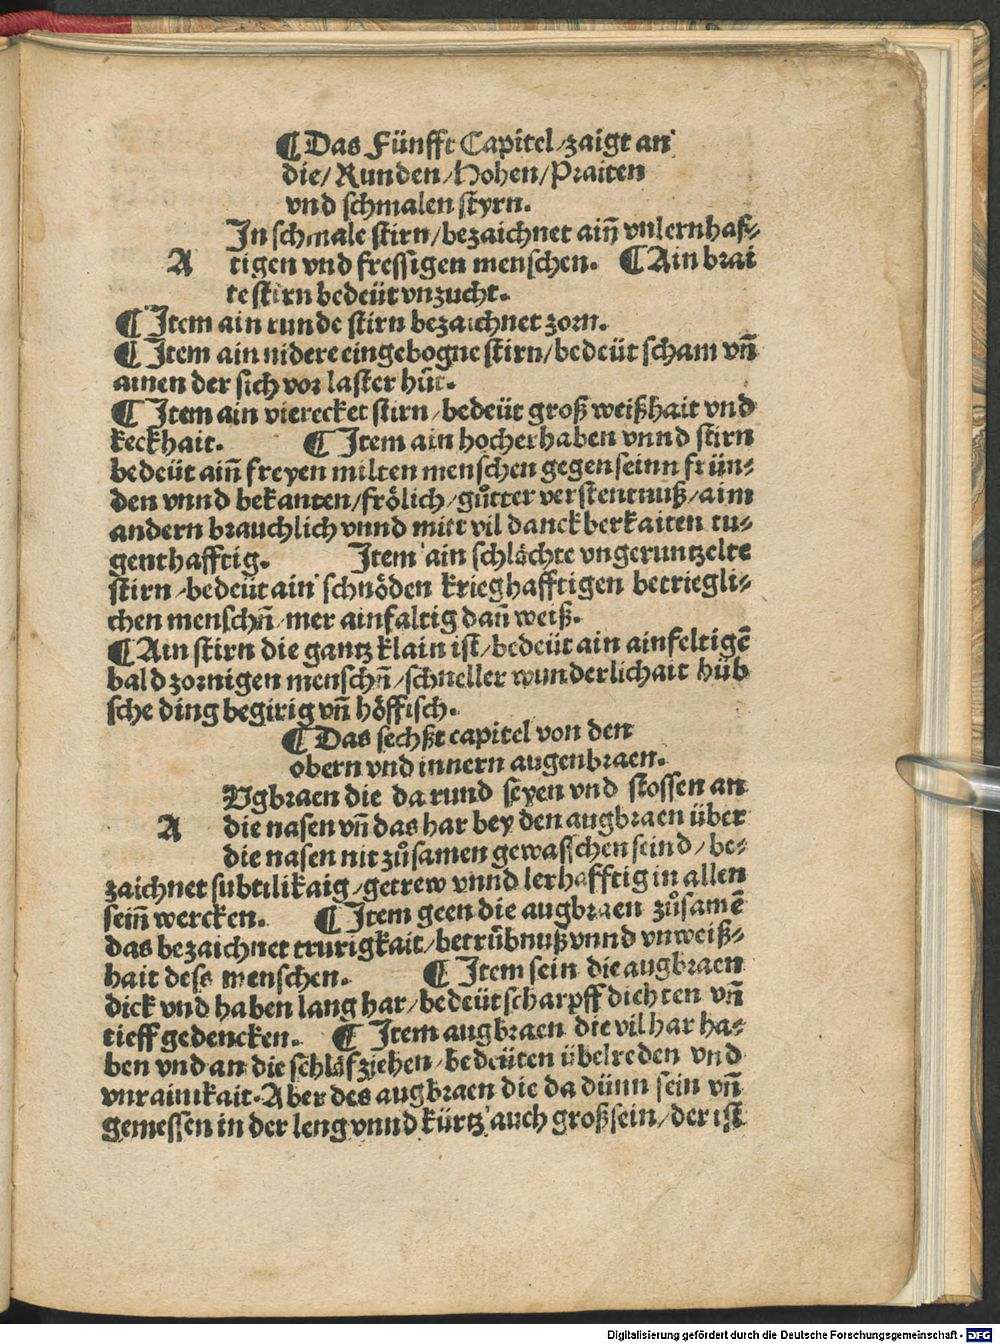 ¶ Das Fünfft Capitel/zaigt an
die/ Runden/Hohen/Praiten
vnd schmalen styrn.
A In schmale stirn/bezaichnet aiñ vnlernhaf⸗
tigen vnd fressigen menschen. ¶ Ain brai
te stirn bedeüt vnzucht.
¶ Item ain runde stirn bezaichnet zorn.
¶ Item ain nidere eingebogne stirn/bedeüt scham vñ
ainen der sich vor laster hüt.
¶ Item ain vierecket stirn/bedeüt groß weißhait vnd
keckhait. ¶ Item ain hocherhaben vnnd stirn
bedeüt aiñ freyen milten menschen gegen seinn frün⸗
den vnnd bekanten/frölich/gůtter verstentnuß/aim
andern brauchlich vnnd mitt vil danckberkaiten tu⸗
genthafftig. Item ain schlächte vngeruntzelte
stirn/bedeüt ain schnöden krieghafftigen betriegli⸗
chen menschñ/mer ainfaltig dañ weiß.
¶ Ain stirn die gantz klain ist/bedeüt ain ainfeltigē
bald zornigen menschñ/schneller wunderlichait hüb
sche ding begirig vñ höffisch.
¶ Das sechßt capitel von den
obern vnd innern augenbraen.
A Vgbraen die da rund seyen vnd stossen an
die nasen vñ das har bey den augbraen über
die nasen nit zůsamen gewaschen seind/be⸗
zaichnet subtilikaig/getrew vnnd lerhafftig in allen
seiñ wercken. ¶ Item geen die augbraen zůsamē
das bezaichnet trurigkait/betrübnuß vnnd vnweiß⸗
hait dess menschen. ¶ Item sein die augbraen
dick vnd haben lang har/bedeüt scharpff diehten vñ
tieff gedencken. ¶ Item augbraen die vil har ha⸗
ben vnd an die schläf ziehen/bedeüten übelreden vnd
vnrainikait. Aber des augbraen die da dünn sein vñ
gemessen in der leng vnnd kürtz auch groß sein/der ist
Digitalisierung gefördert durch die Deutsche Forschungsgemeinschaft - DFG